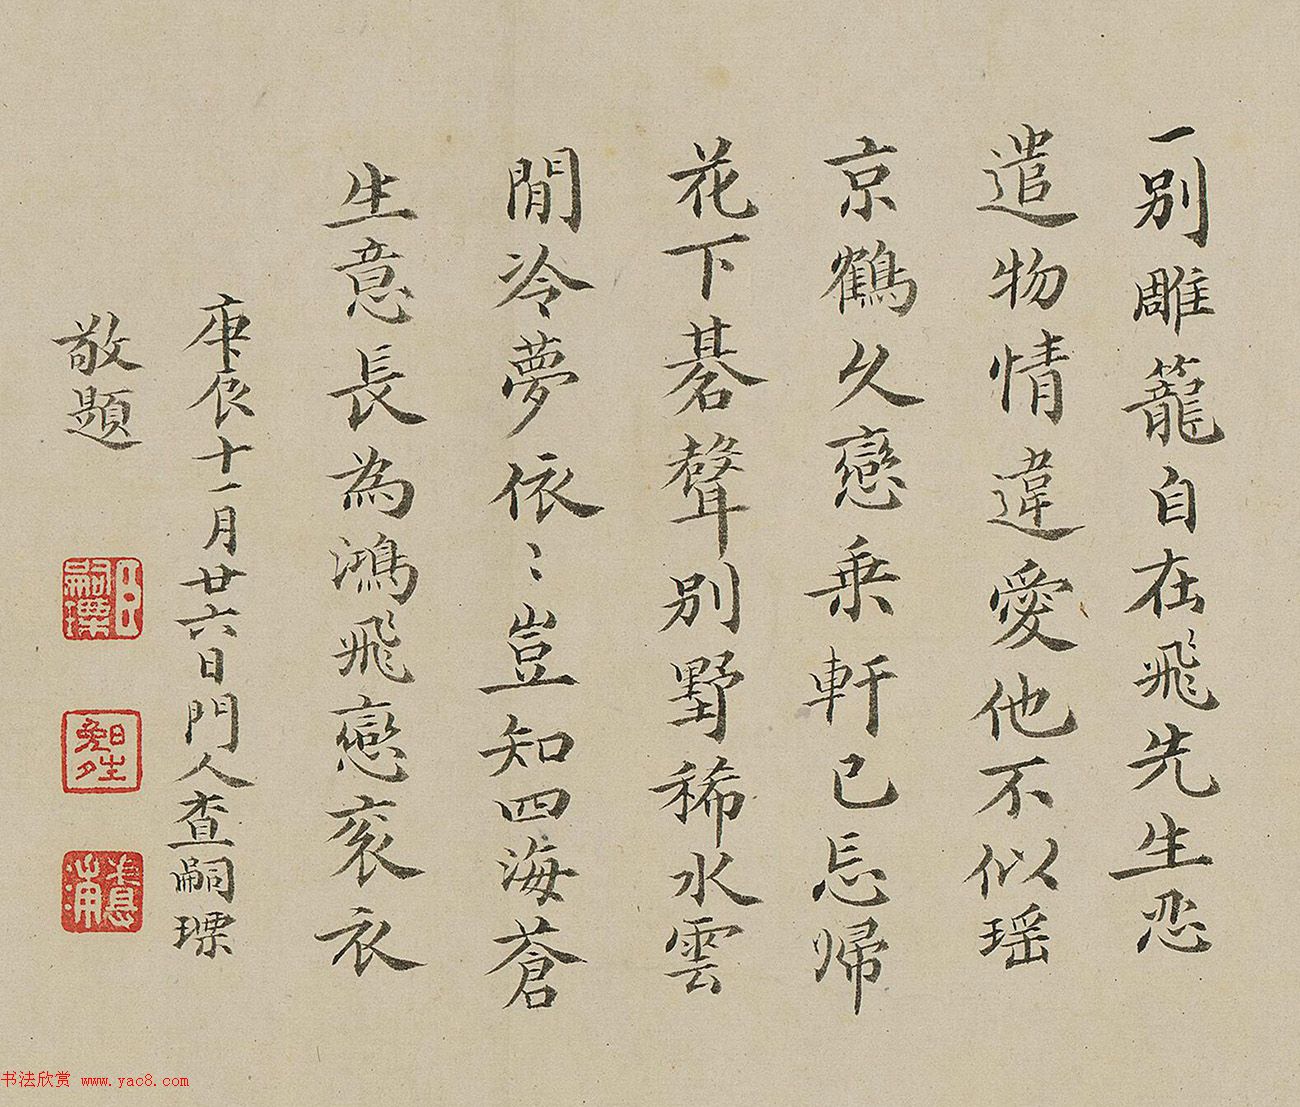 一别雕籠自在飛先生恐
遣物情違愛他不似瑶
京鶴久戀乗軒已忘帰
花下碁聲别墅稀水雲
閒冷夢依〻豈知四海蒼
生意長為鴻飛戀衮衣
庚辰十一月廿六日門人查嗣瑮
敬題
臣嗣瑮
查浦
书法欣赏 www.yac8.com